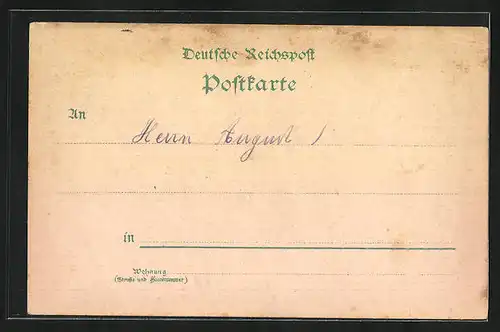 Deutsche Reichspost
Postkarte
An
Herrn August
in
Wohnung
(Straße und Hausnummer)